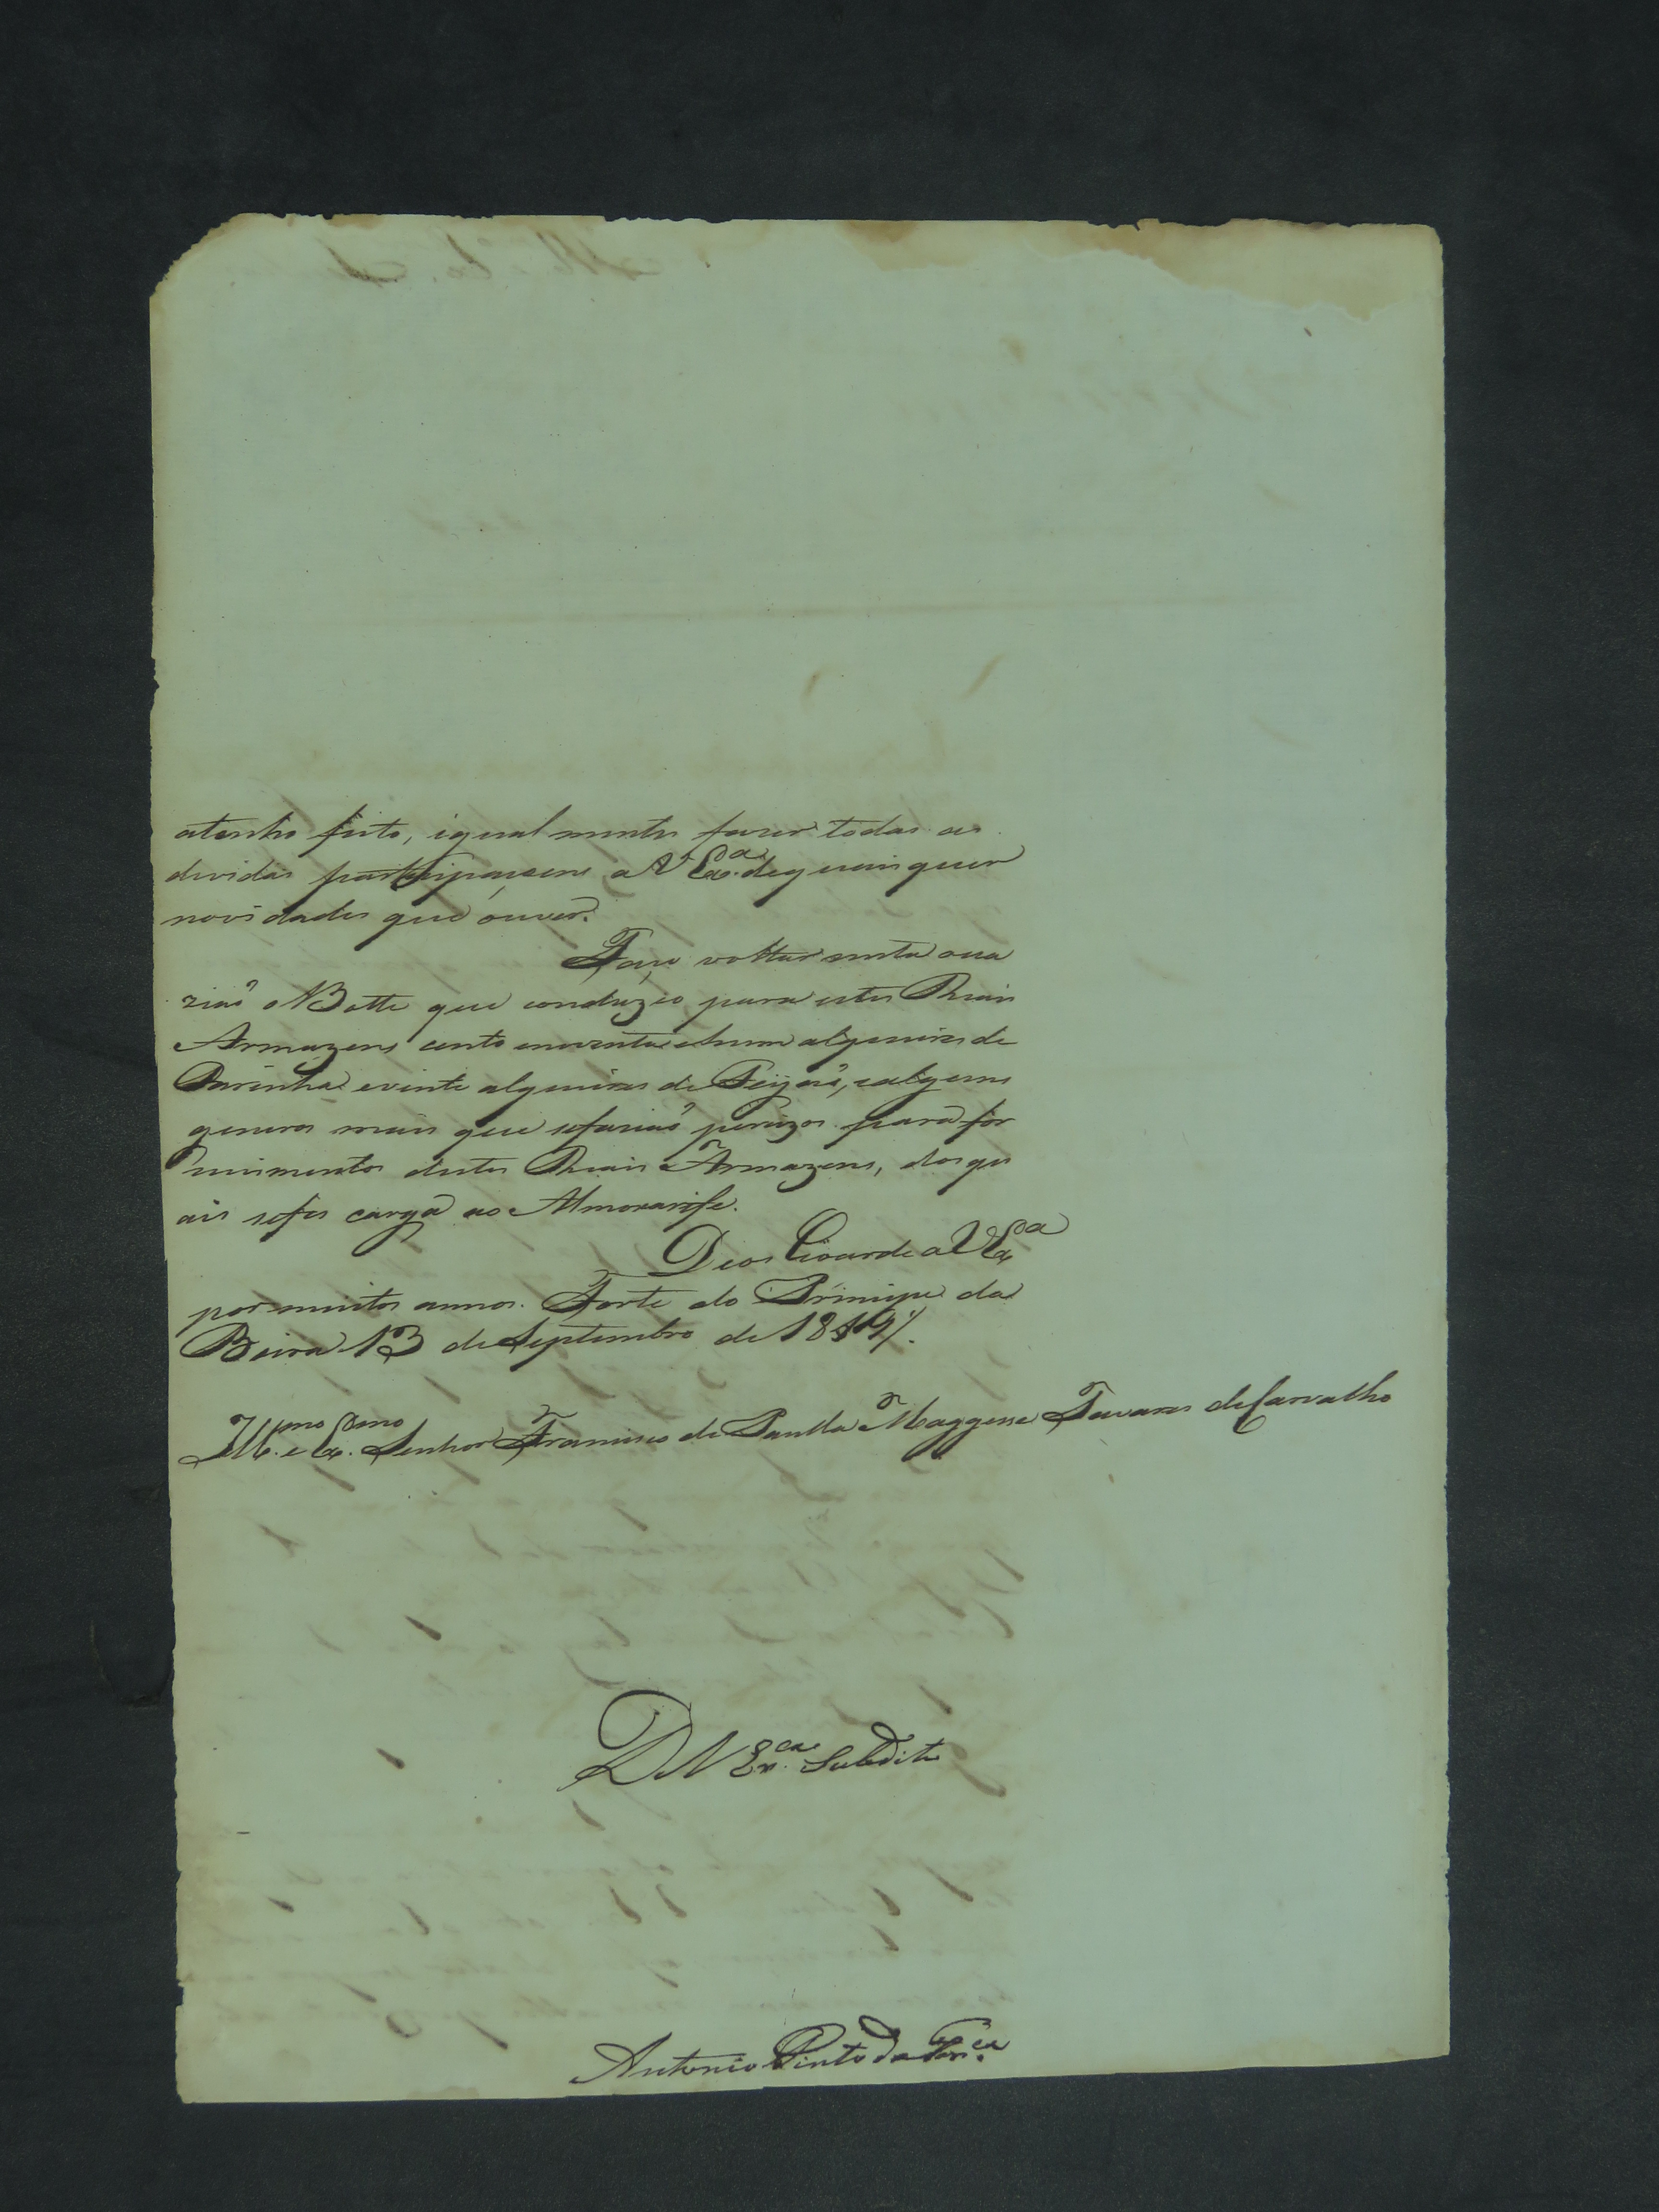 atenho feito, igual mente fazer todas as
devidas partisipaçoens a V Ex.ª dequeinquer
novidades que ouver.
Faço voltar nesta oca
zião o Botte que conduzio para estes Reais
Armazens cento enoventa ehum alqueires de
Farinha evinte alqueires de Feijão, ealguns
generos mais que sefazião percizos para for
necimentos destes Reais Armazens, dos qu
ais sefes carga ao Almoxarife.
Deos Goarde a V Ex.ª
por muitos annos. Forte do Principe da
Beira 13 de Septembro de 1819
Ill.mo e Ex.mo Senhor Francisco de Paulla Maggesse Tavares de Carvalho
D V Ex.ca Subdito
Antonio Pinto da Fon.ca